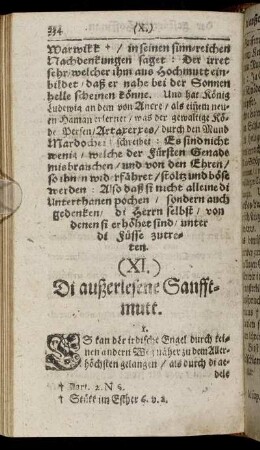 234 (X.)
Warwikk † / in seinen sinnreichen
Nachdenkungen saget: Der irret
sehr/ welcher ihm aus Hochmutt ein-
bildet/ daß er nahe bei der Sonnen
helle scheinen könne. Und hat König
Ludewig an dem von Ancre/ als einem neu-
en Haman erlernet/ was der gewaltige Kö-
nig Persen/ Artaxerxes/ durch den Mund
Mardochei; schreibet: Es sind nicht
wenig/ wilche der Fürsten Genade
misbrauchen/ und von den Ehren/
so ihn/ widerfähret/ stolz und böse
werden: Also daß si nicht alleine di
Unterthanen pochen/ sondern auch
gedenken/ di Herrn selbst/ von
denen si erhöhet sind/ unter
di Füsse zutre-
ten.
(XI.)
Di außerlesene Sanfft-
mutt.
1.
ES kan dër irdische Engel durch kei-
nen andern Weg näher zu dem Aller-
höchsten gelangen/ als durch di ae-
dele
† Part. 2. N 4.
† Stükk im Esther 6. v. 2.